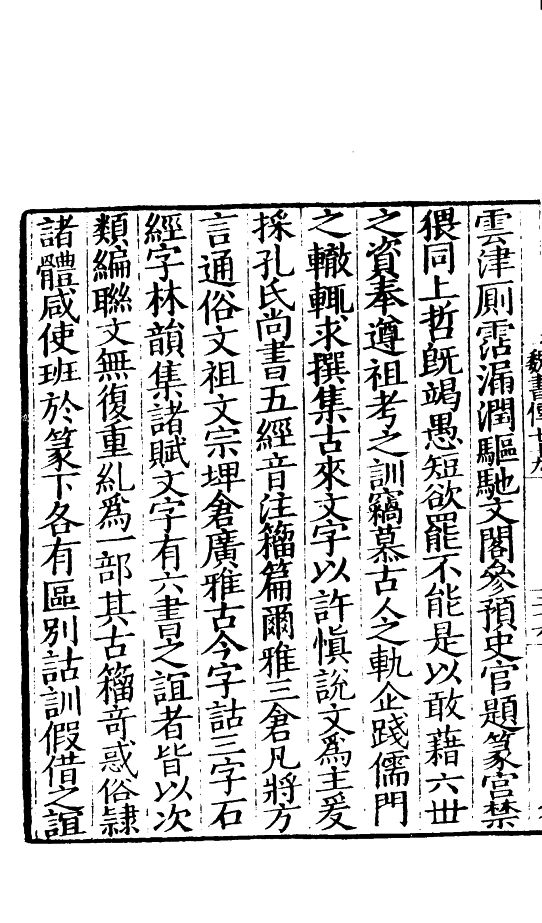 魏書傳
雲津厠霑漏潤驅馳文閣參預史官題篆宮禁
猥同上哲旣竭愚短欲罷不能是以敢藉六世
之資奉遵祖考之訓竊慕古人之軌企踐儒門
之轍輒求撰集古來文字以許愼說文爲主爰
採孔氏尚書五經音注籀篇爾雅三倉凡將方
言通俗文祖文宗埤倉廣雅古今字詁三字石
經字林韻集諸賦文字有六書之誼者皆以次
類編聯文無復重糺爲一部其古籀竒惑俗隷
諸體咸使班於篆下各有區別詁訓假借之誼